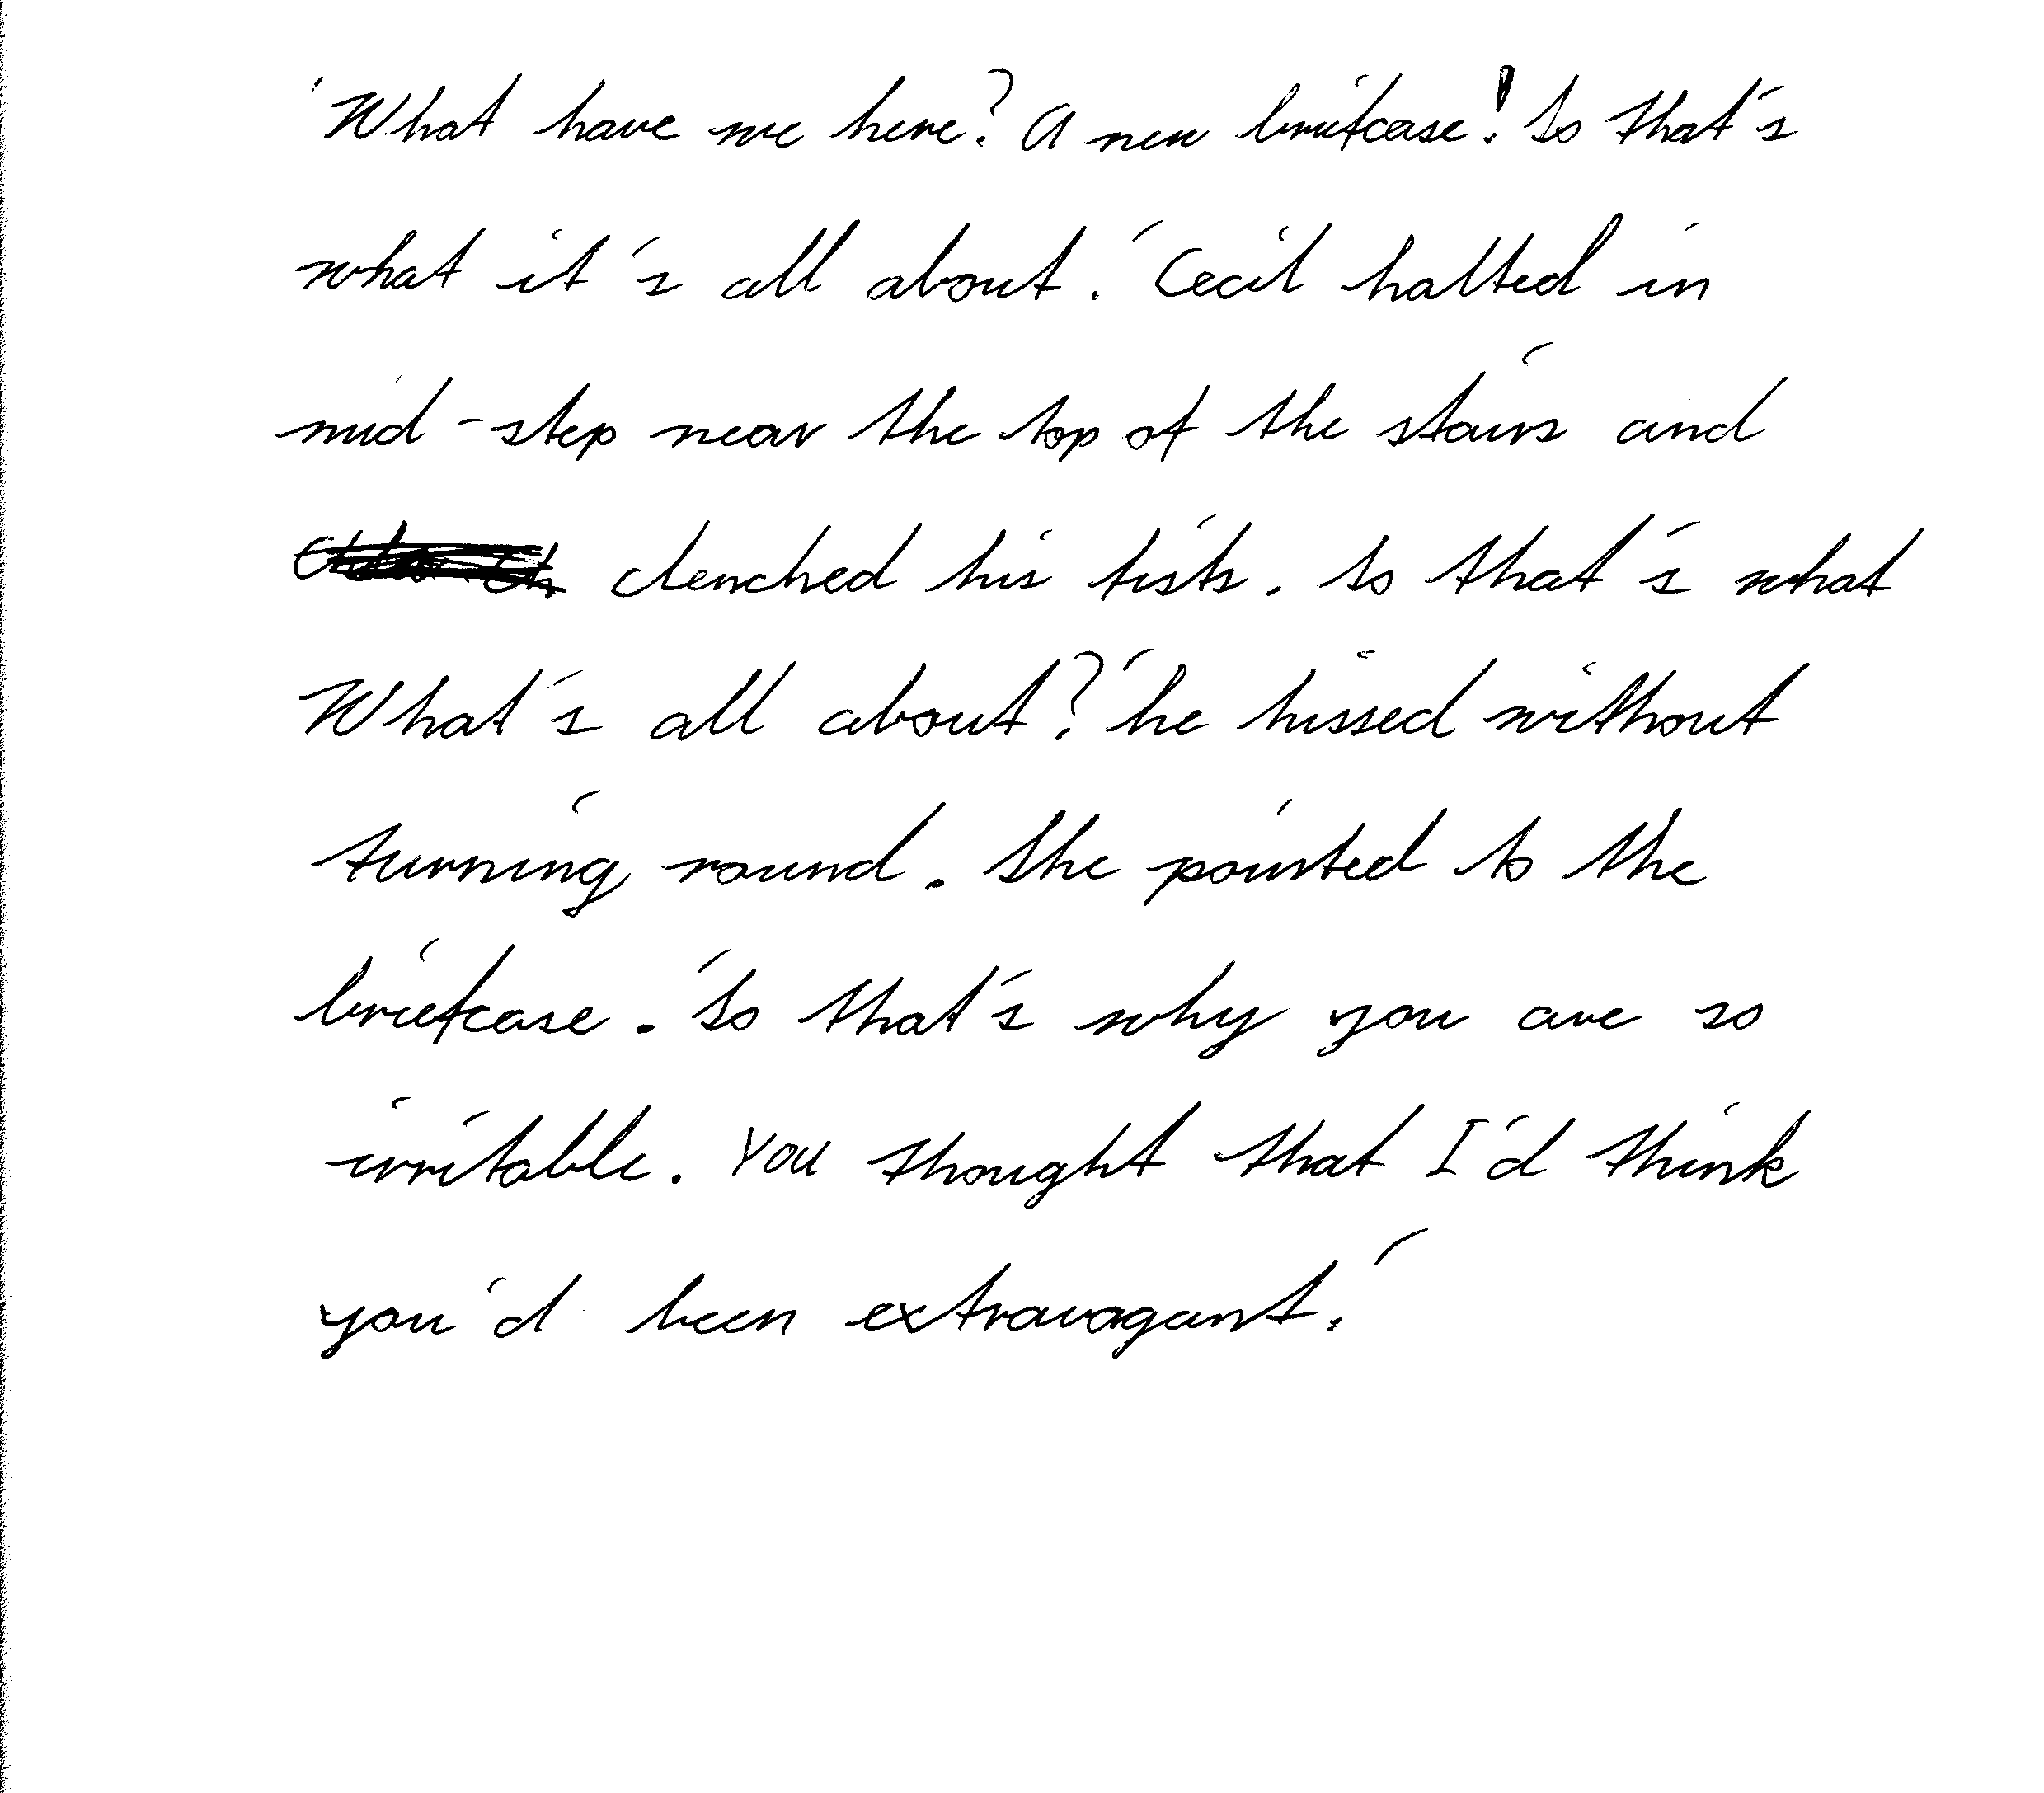 'What have we here? A new briefcase! So that's
what it's all about.' Cecil halted in
mid-step near the top of the stairs and
clenched his fists. So that's what
What's all about?' he hissed without
turning round. She pointed to the
briefcase. 'So that's why you are so
irritable. You thought that I'd think
you'd been extravagant.'